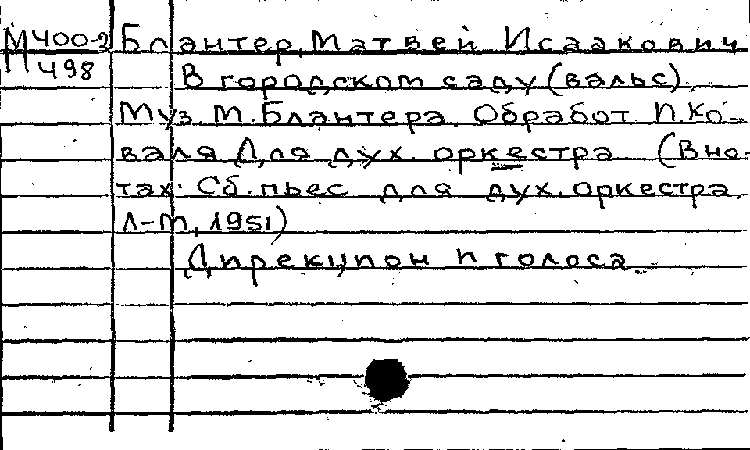 М400-2 Блантер, Матвей Исаакович
М498 В городском саду (вальс).
Муз. М. Блантера. Обработ. П. Ко-
валя Для дух. оркестра (В но-
тах: Сб. пьес для дух. оркестра
Л-М, 1951)
Дирекцион и голоса.